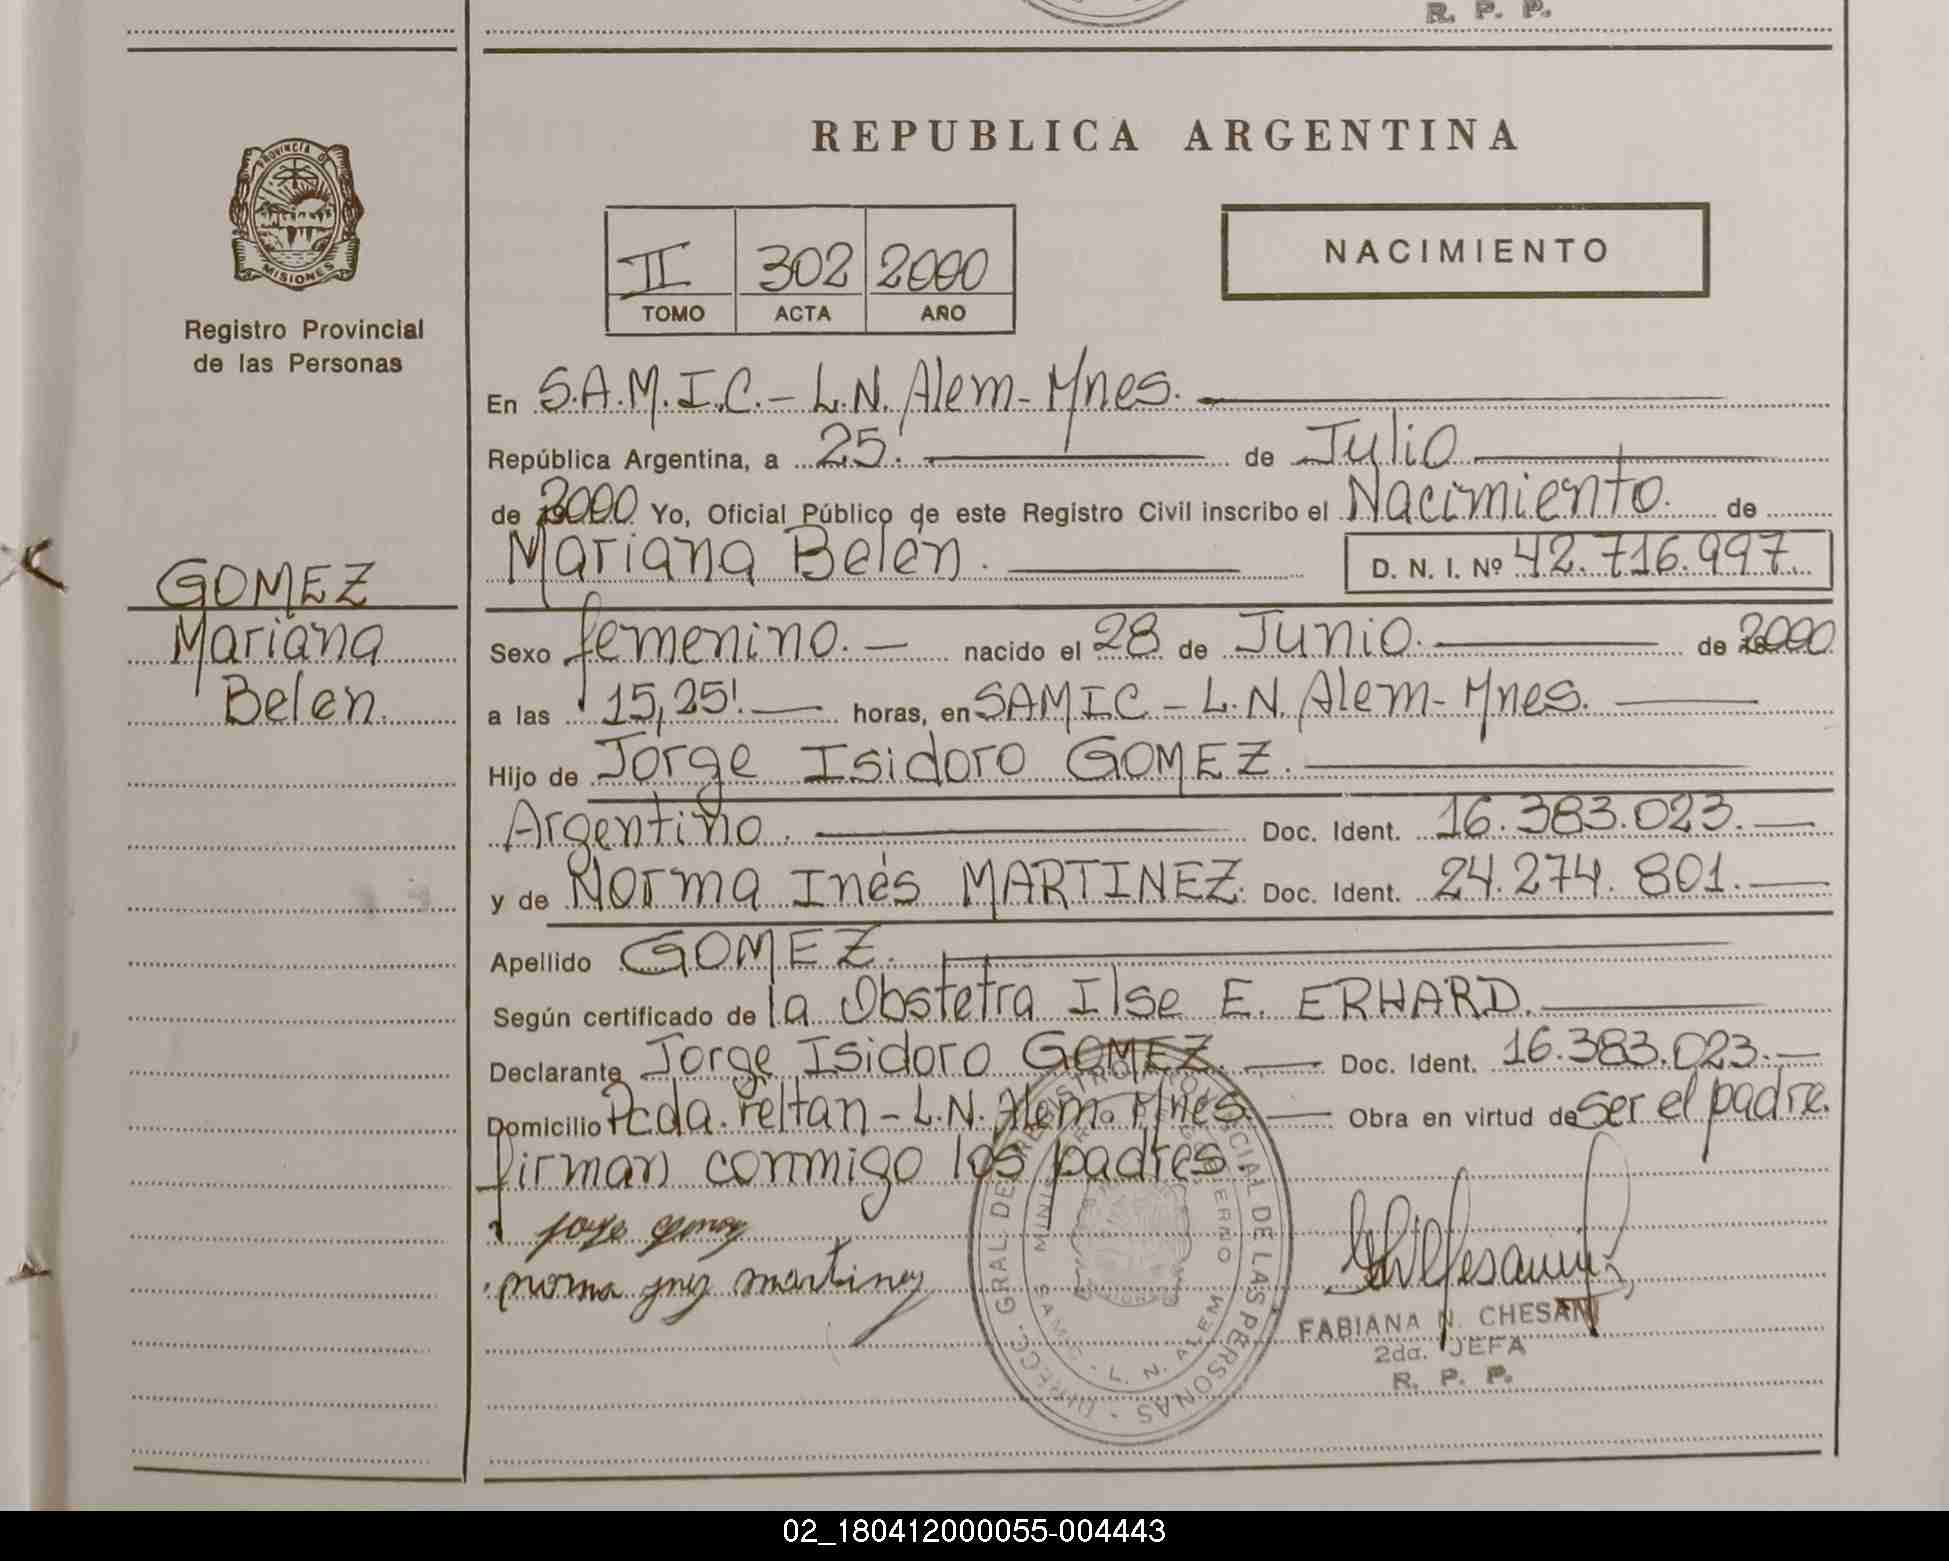 R. P. P.
REPUBLICA ARGENTINA
PROVINCIA DE
MISIONES
Registro Provincial
de las Personas
II 302 2000
TOMO ACTA AÑO
NACIMIENTO
En S.A.M.I.C.- L.N. Alem- Mnes.
República Argentina, a 25. de Julio
de 2000 Yo, Oficial Público de este Registro Civil inscribo el Nacimiento. de
Mariana Belén. D. N. I. Nº 42.716.997.
GOMEZ
Mariana
Belen.
Sexo femenino.- nacido el 28 de Junio. de 2000
a las 15,25! horas, en SAMIC - L.N. Alem- Mnes.
Hijo de Jorge Isidoro GOMEZ.
Argentino. Doc. Ident. 16.383.023.-
y de Norma Inés MARTINEZ. Doc. Ident. 24.274.801.-
Apellido GOMEZ.
Según certificado de la Obstetra Ilse E. ERHARD.
Declarante Jorge Isidoro GOMEZ. Doc. Ident. 16.383.023.-
Domicilio Pcda. Feltan - L.N. Alem. Mnes. Obra en virtud de Ser el padre.
firman conmigo los padres.
norma martinez
DIRECC. GRAL DE REGISTRO PROVINCIAL DE LAS PERSONAS
GOBIERNO
L. N. ALEM
FABIANA N. CHESANI
2da. JEFA
R. P. P.
02_180412000055-004443